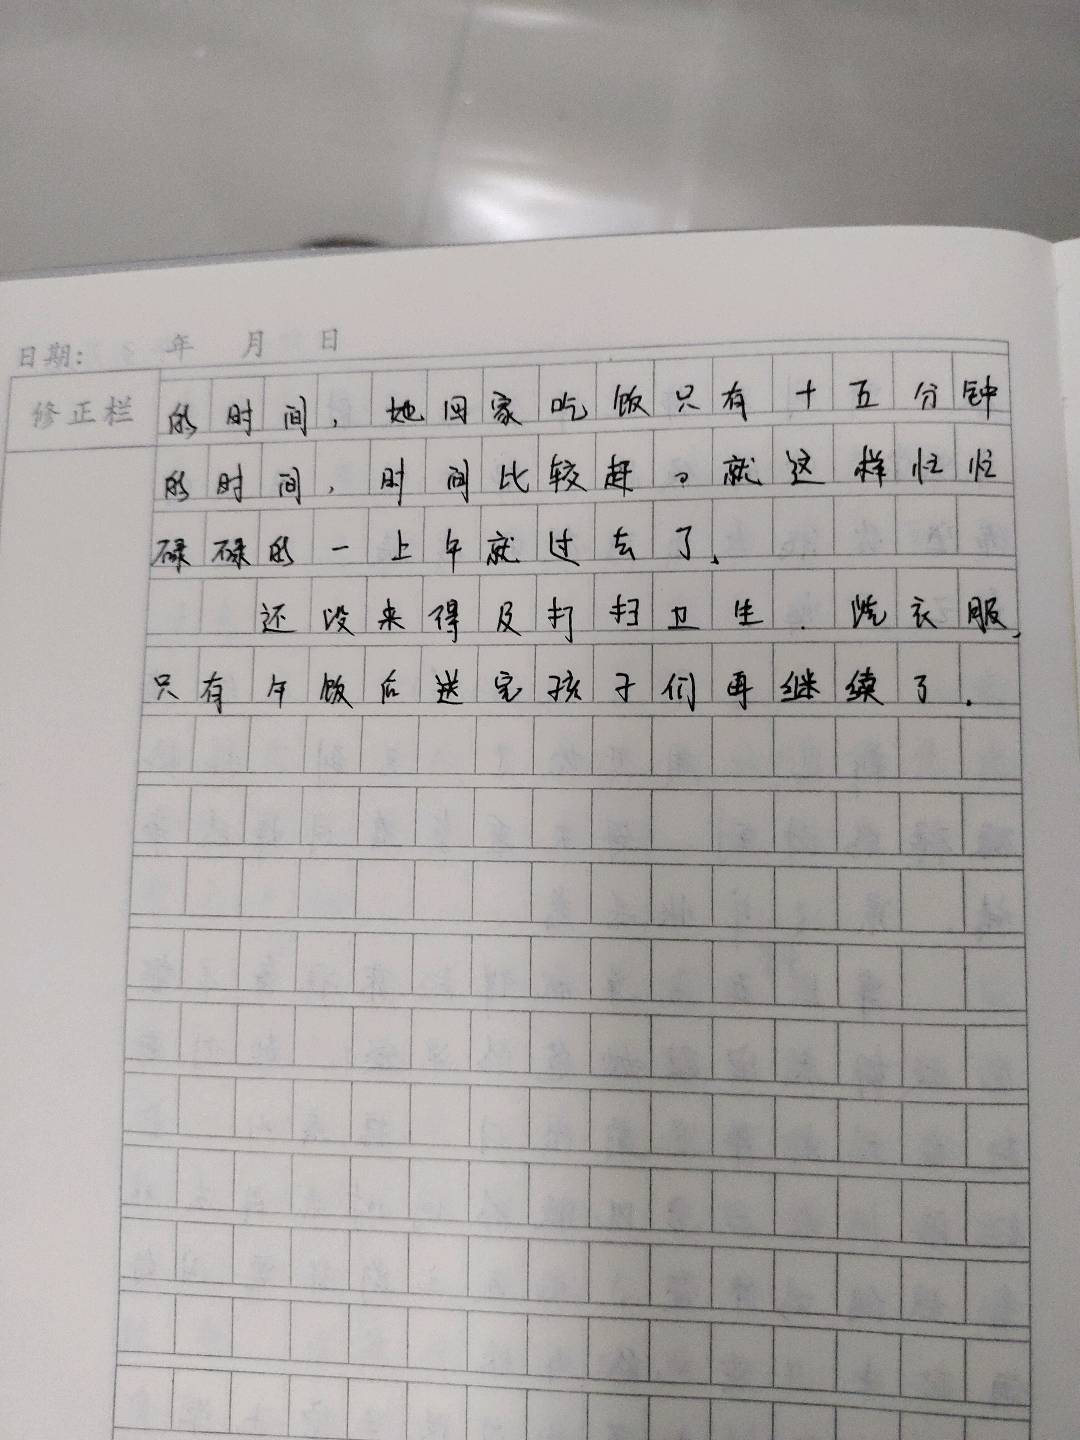 日期: 年 月 日
修正栏
的时间，她回家吃饭只有十五分钟
的时间，时间比较赶。就这样忙忙
碌碌的一上午就过去了.
还没来得及打扫卫生.洗衣服,
只有午饭后送完孩子们再继续了.